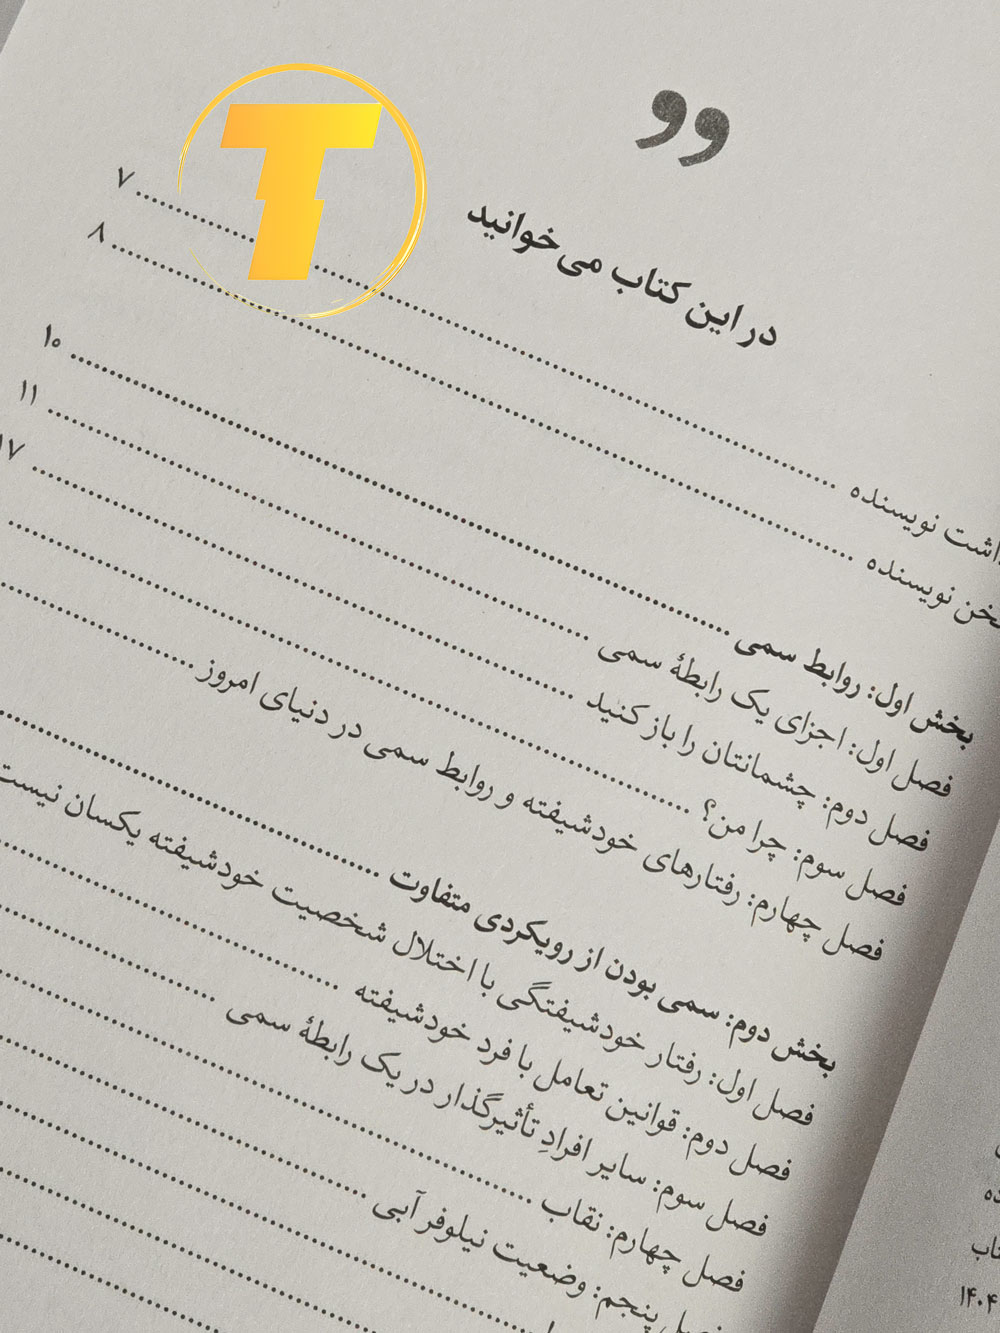 در این کتاب می‌خوانید
نویسنده ۷
نویسنده ۸
بخش اول: روابط سمی ۱۰
فصل اول: اجزای یک رابطهٔ سمی ۱۱
فصل دوم: چشمانتان را باز کنید ۱۷
فصل سوم: چرا من؟
فصل چهارم: رفتارهای خودشیفته و روابط سمی در دنیای امروز
بخش دوم: سمی بودن از رویکردی متفاوت
فصل اول: رفتار خودشیفتگی با اختلال شخصیت خودشیفته یکسان نیست
فصل دوم: قوانین تعامل با فرد خودشیفته
فصل سوم: سایر افرادِ تأثیرگذار در یک رابطهٔ سمی
فصل چهارم: نقاب
پنجم: وضعیت نیلوفر آبی
۱۴۰۴